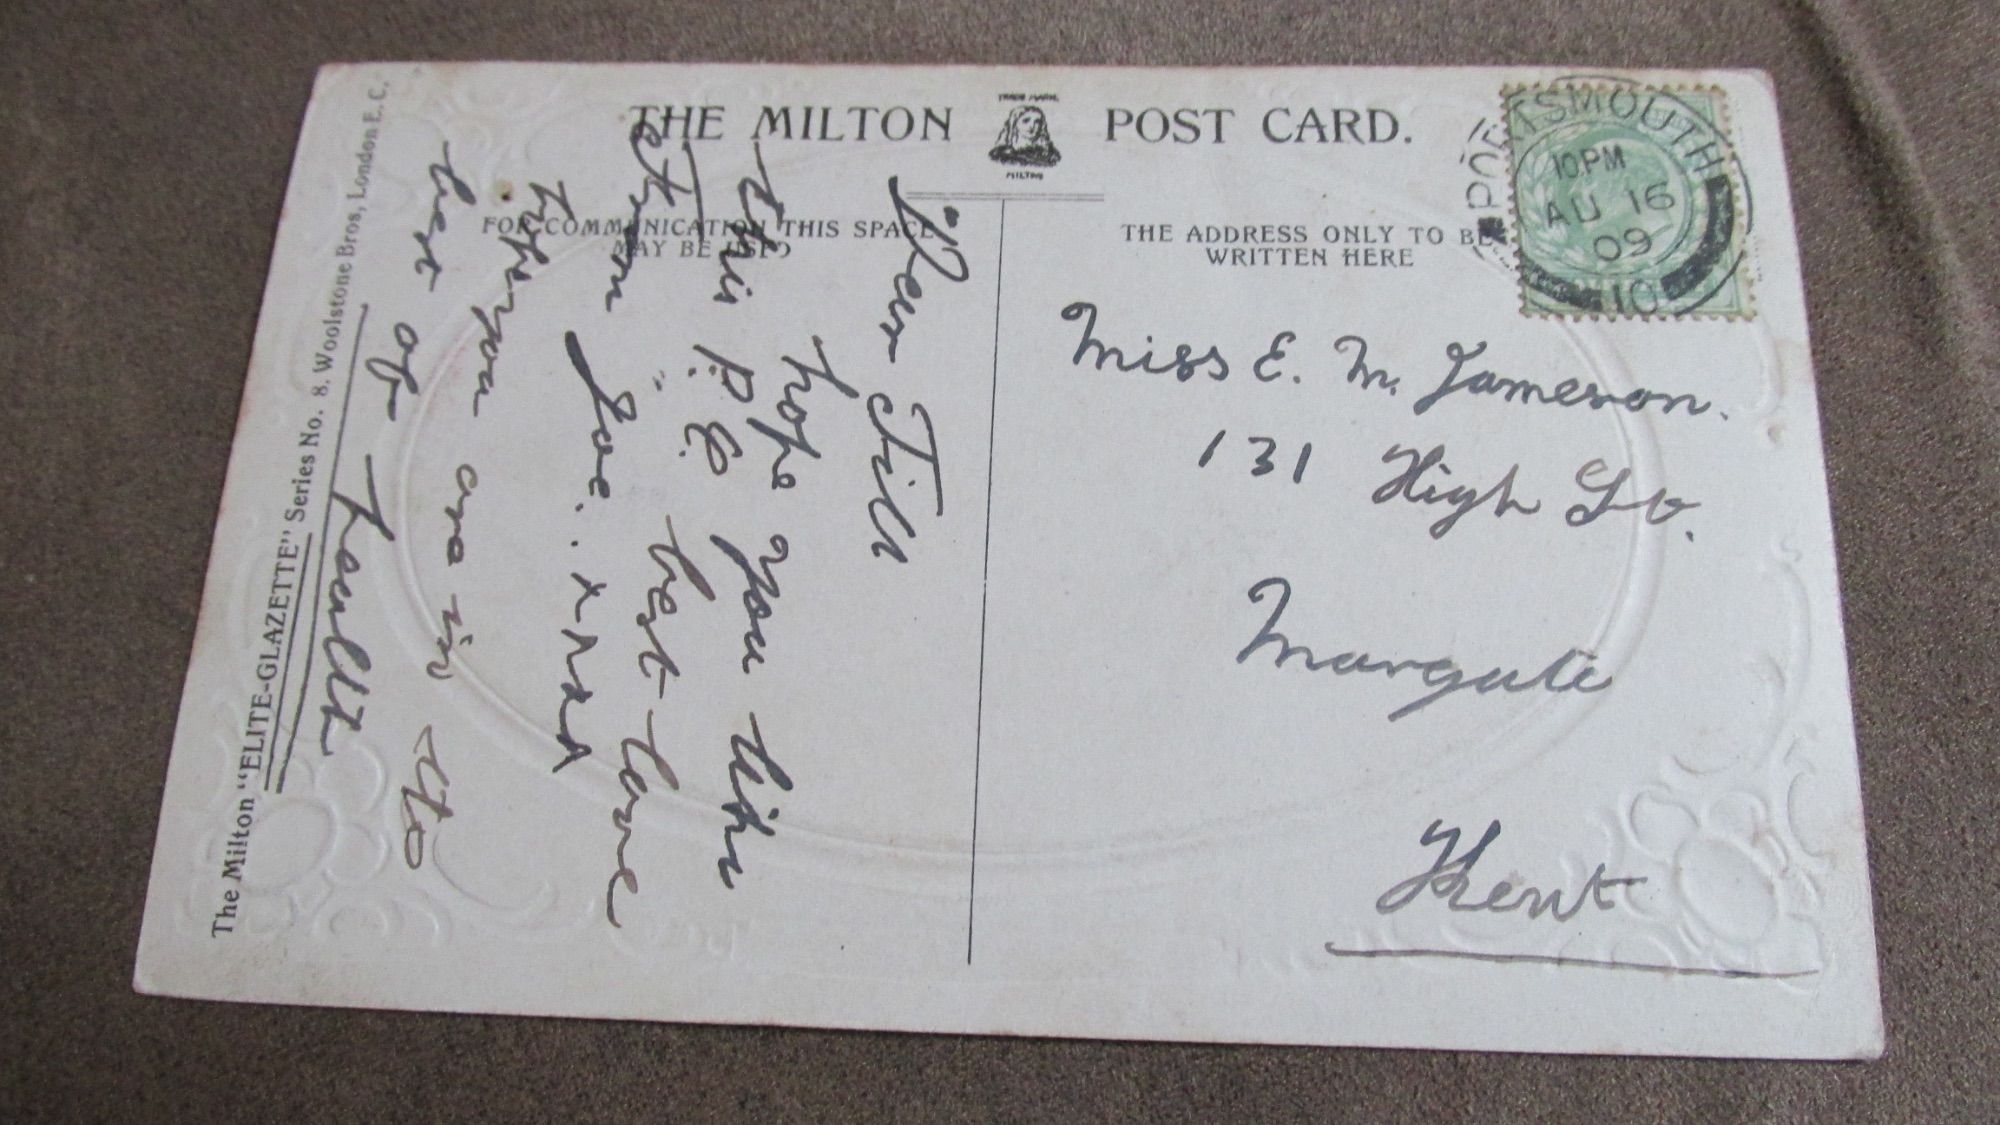 THE MILTON POST CARD.
TRADE MARK
MILTON
FOR COMMUNICATION THIS SPACE
MAY BE USED
THE ADDRESS ONLY TO BE
WRITTEN HERE
PORTSMOUTH
10.PM
AU 16
09
10
Miss E. M. Jameson.
131 High St.
Margate
Kent
Dear Till
hope you like
this P. C. best love
from Joe. x x x x x
hope you are in the
best of health
The Milton "ELITE-GLAZETTE" Series No. 8. Woolstone Bros, London E. C.